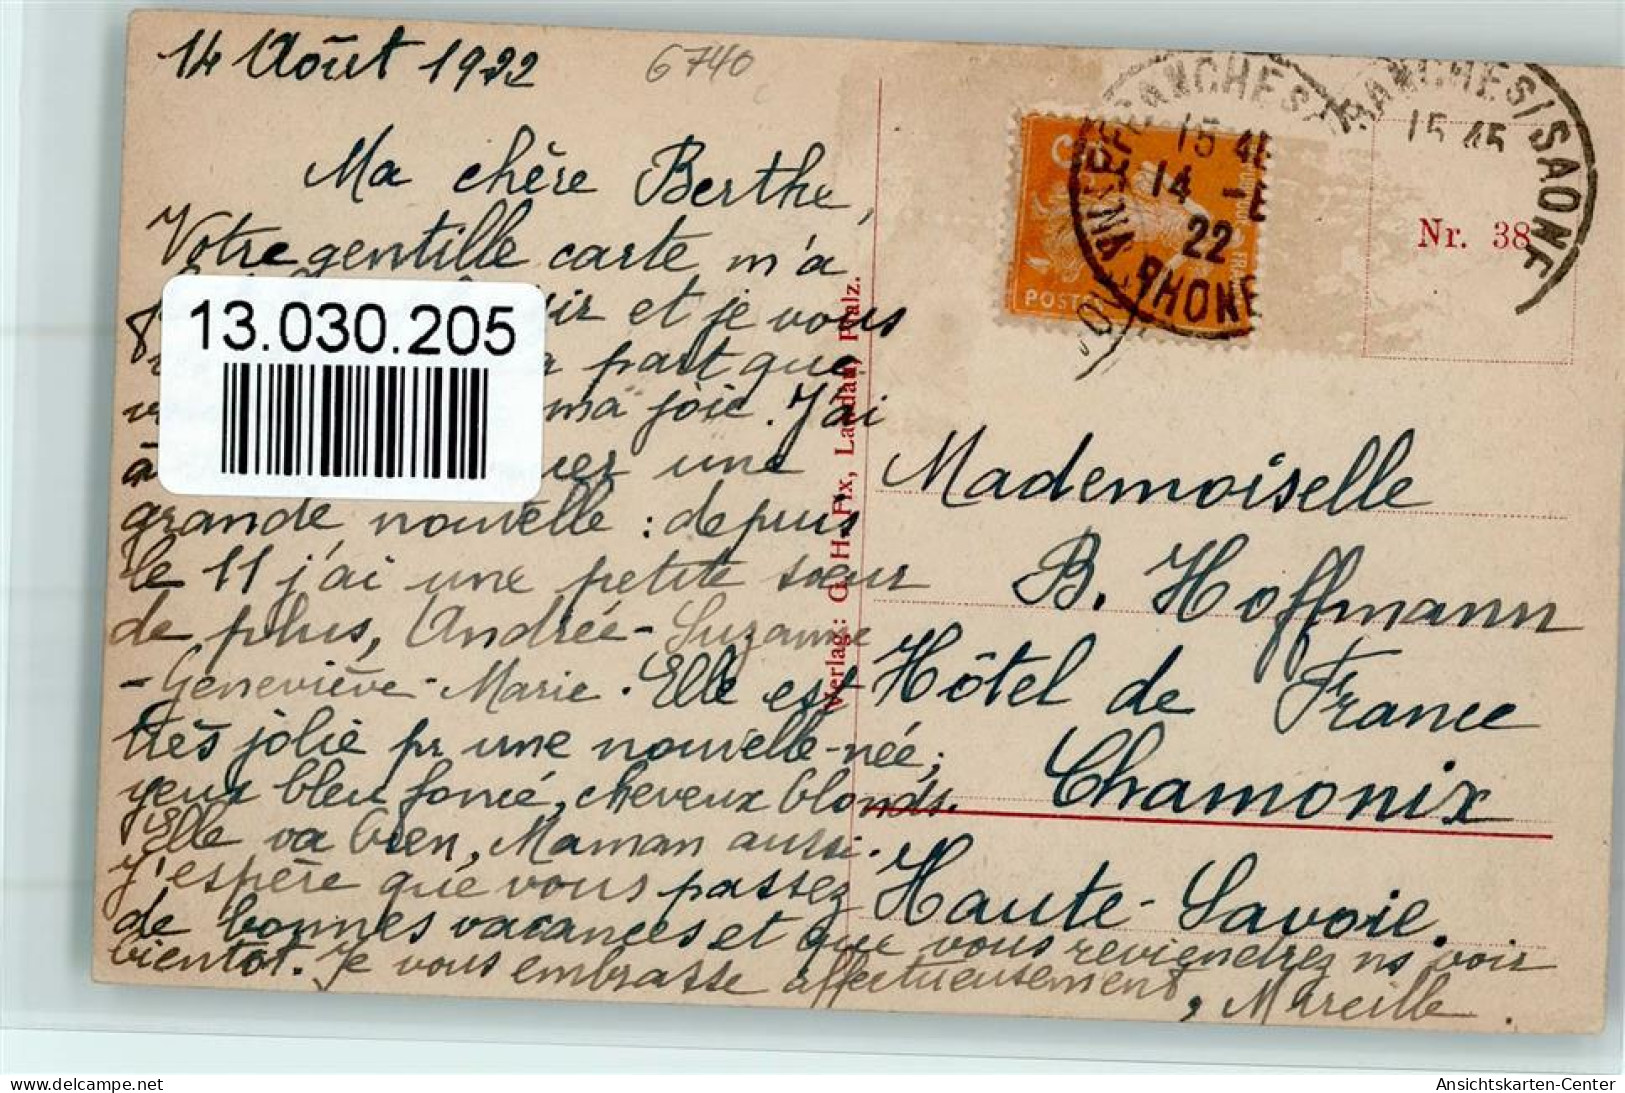 14 Août 1922
6740
Ma chère Berthe,
Votre gentille carte m'a
et je vous
part que
ma joie. J'ai
une
grande nouvelle : depuis
le 11 j'ai une petite sœur
de plus, Andrée-Suzanne
-Geneviève-Marie. Elle est
très jolie pr une nouvelle-née;
yeux bleu foncé, cheveux blonds.
Elle va bien, Maman aussi.
J'espère que vous passez
de bonnes vacances et que vous reviendrez ns voir
bientôt. Je vous embrasse affectueusement,
Mareille.
13.030.205
Verlag: G. H. Fix, Landau, Pfalz.
POSTES
15 45
14 -
22
RHONE
RANCHES/SAONE
15 45
Nr. 38
Mademoiselle
B. Hoffmann
Hôtel de France
Chamonix
Haute-Savoie.
www.delcampe.net
Ansichtskarten-Center